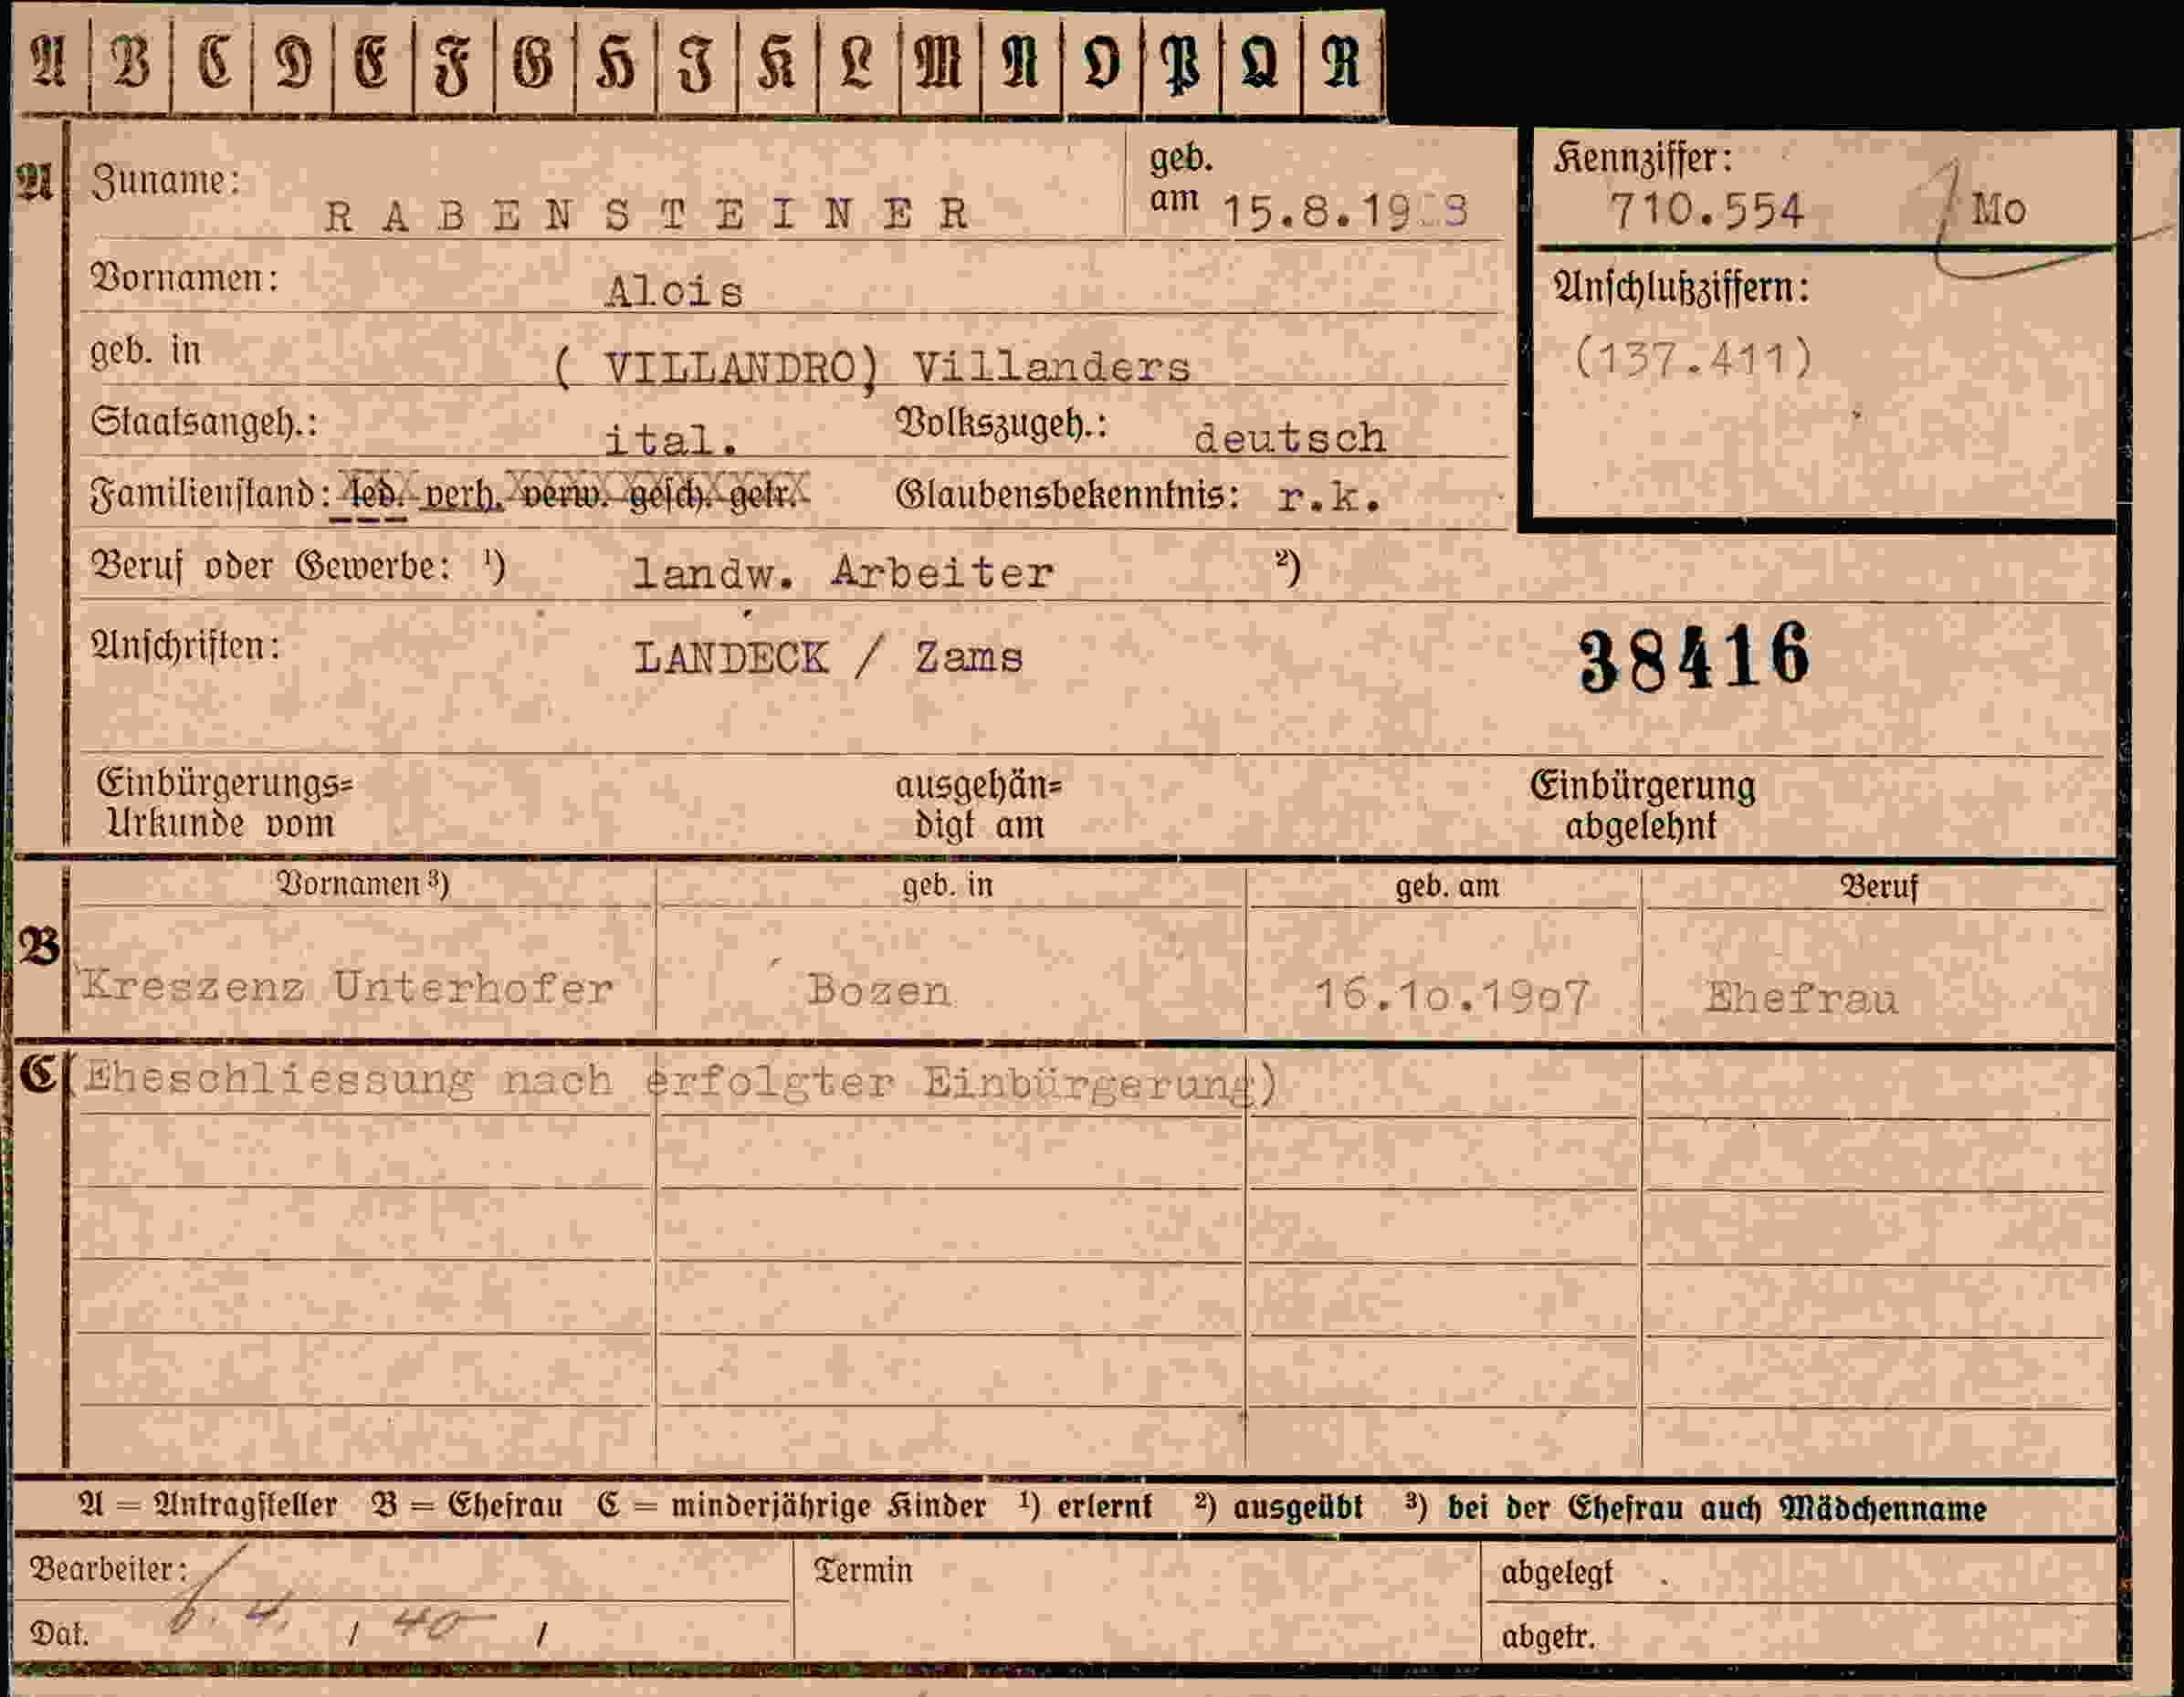 A B C D E F G H I K L M N O P Q R
A Zuname: RABENSTEINER geb. am
Kennziffer: 710.554 Mo
Vornamen: Alois
Anschlußziffern: (137.411)
geb. in ( VILLANDRO) Villanders
Staatsangeh.: ital. Volkszugeh.: deutsch
Familienstand: led. verh. verw. gesch. getr. Glaubensbekenntnis: r.k.
Beruf oder Gewerbe: ¹) landw. Arbeiter ²)
Anschriften: LANDECK / Zams 38416
Einbürgerungs= ausgehän= Einbürgerung
Urkunde vom digt am abgelehnt
Vornamen ³) geb. in geb. am Beruf
B Kreszenz Unterhofer Bozen 16.1o.19o7 Ehefrau
C (Eheschliessung nach erfolgter Einbürgerung)
A = Antragsteller B = Ehefrau C = minderjährige Kinder ¹) erlernt ²) ausgeübt ³) bei der Ehefrau auch Mädchenname
Bearbeiter: Termin abgelegt
Dat. 6. 4. / 40 / abgetr.